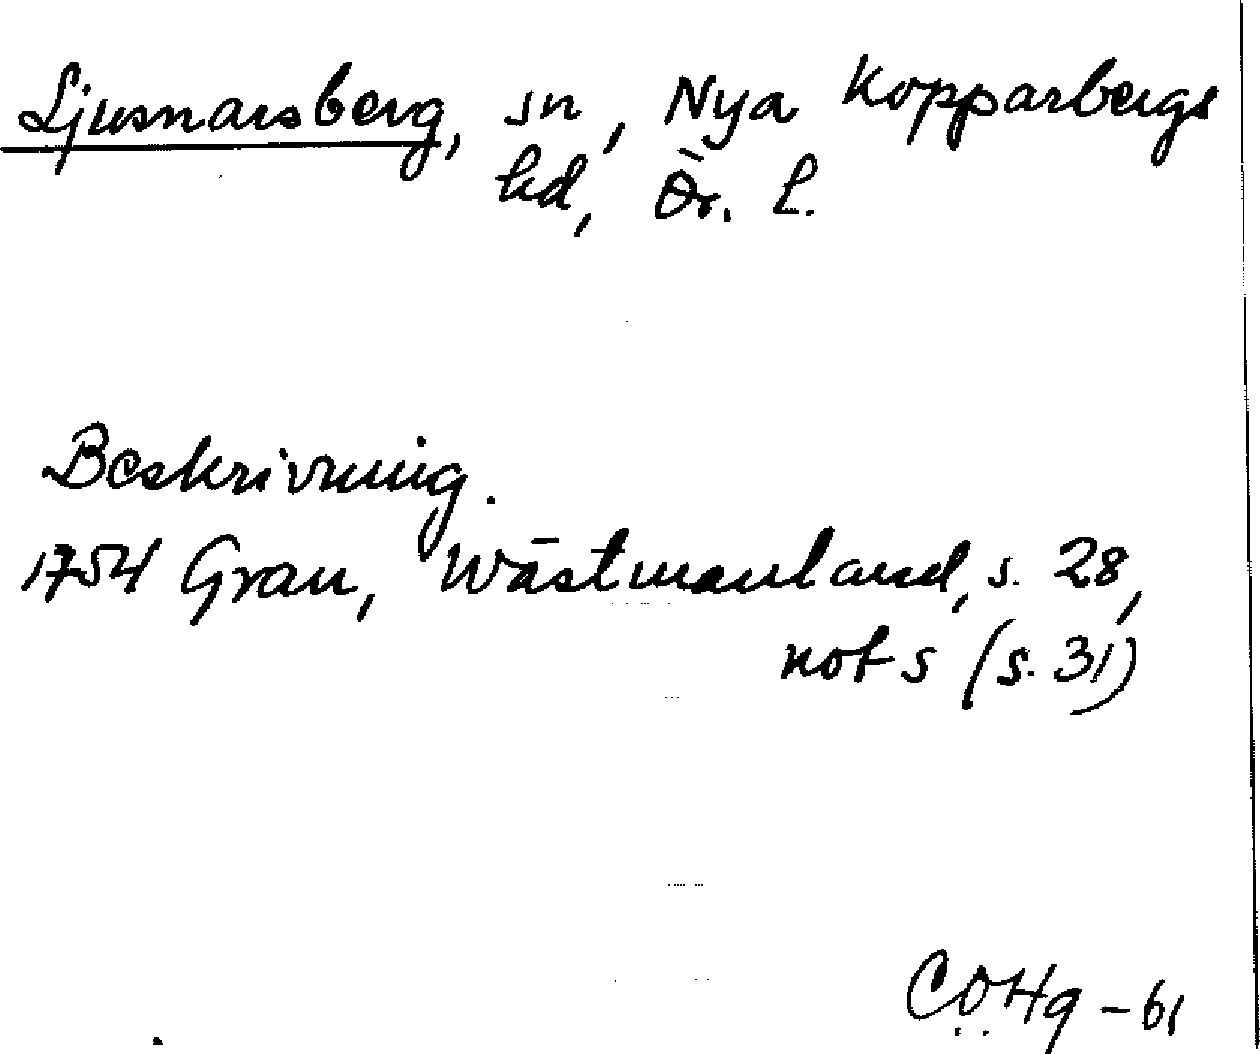 Ljusnarsberg, sn, Nya Kopparbergs
hd, Ör. l.
Beskrivning.
1754 Grau, Wästmanland, s. 28,
not s (s. 31)
COHg -61